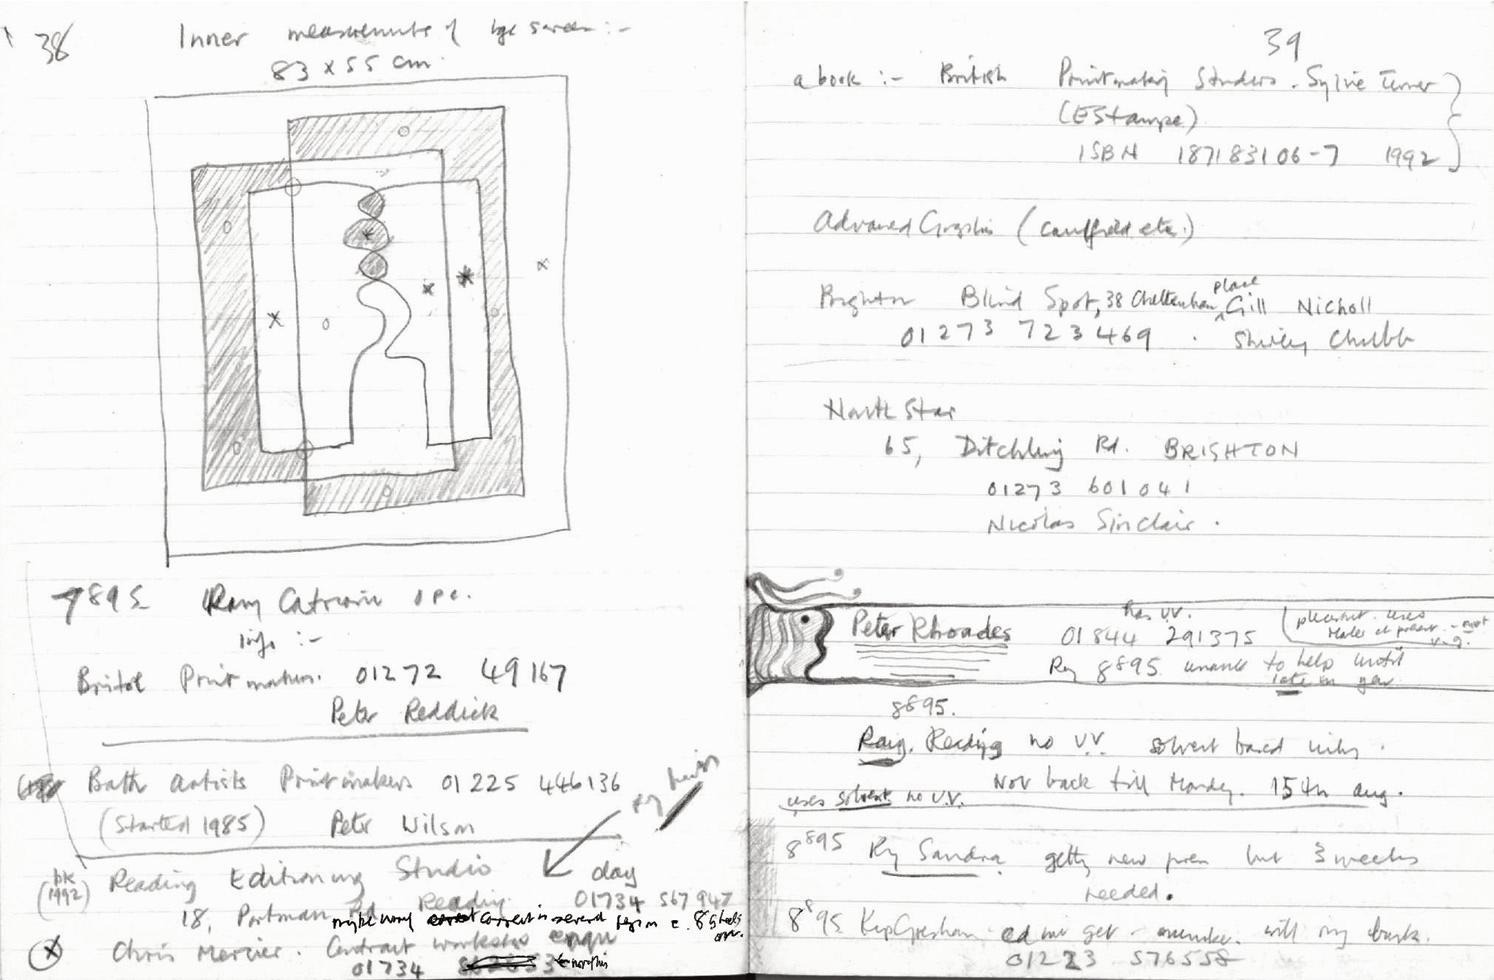 38
Inner measurements of lge screen :-
83 x 55 cm.
7895 Ring
info :-
Bristol Printmakers. 01272 49167
Peter Reddick
Bath Artists Printmakers 01225 446136
(Started 1985) Peter Wilson
(bk 1992) Reading Editioning Studio day
Reading 01734 567947
18, Portman Rd
Chris Mercier. Contract workshop
01734
39
a book :- British Printmaking Studios. Sylvie Turner
(EStampe)
ISBN 187183106-7 1992
Advanced Graphics (Caulfield etc.)
Brighton Blind Spot, 38 Cheltenham place Gill Nicholl
01273 723469 . Shirley Chubb
North Star
65, Ditchling Rd. BRIGHTON
01273 601041
Nicolas Sinclair.
has UV.
Peter Rhoades 01844 291375 (pleasant. uses
at present - not
v.g.
Rg 8895 unable to help until
late in year
8895.
Rang. Reading no UV. solvent based inks.
Not back till Monday. 15th aug.
uses solvent no UV.
8895 Rg Sandra. getting new press but 3 weeks
needed.
8895 Kip Gresham. cd not get - number. will ring back.
01223 576558